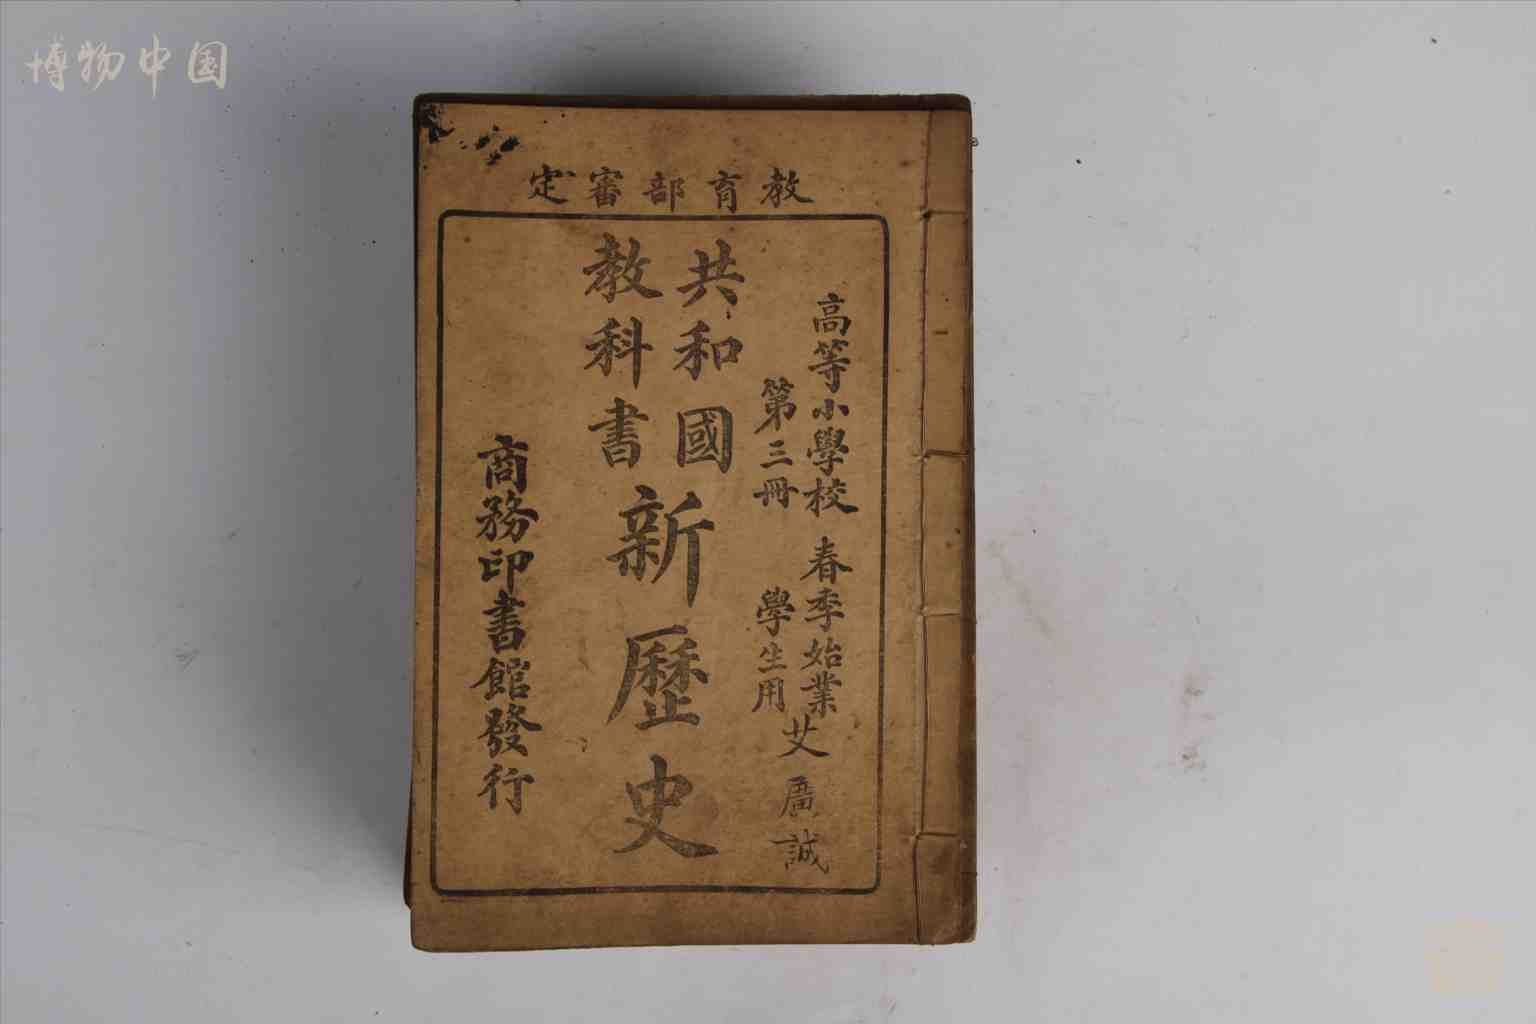 博物中国
教育部審定
高等小學校 春季始業
第三冊 學生用
艾廣誠
共和國
教科書
新歷史
商務印書館發行